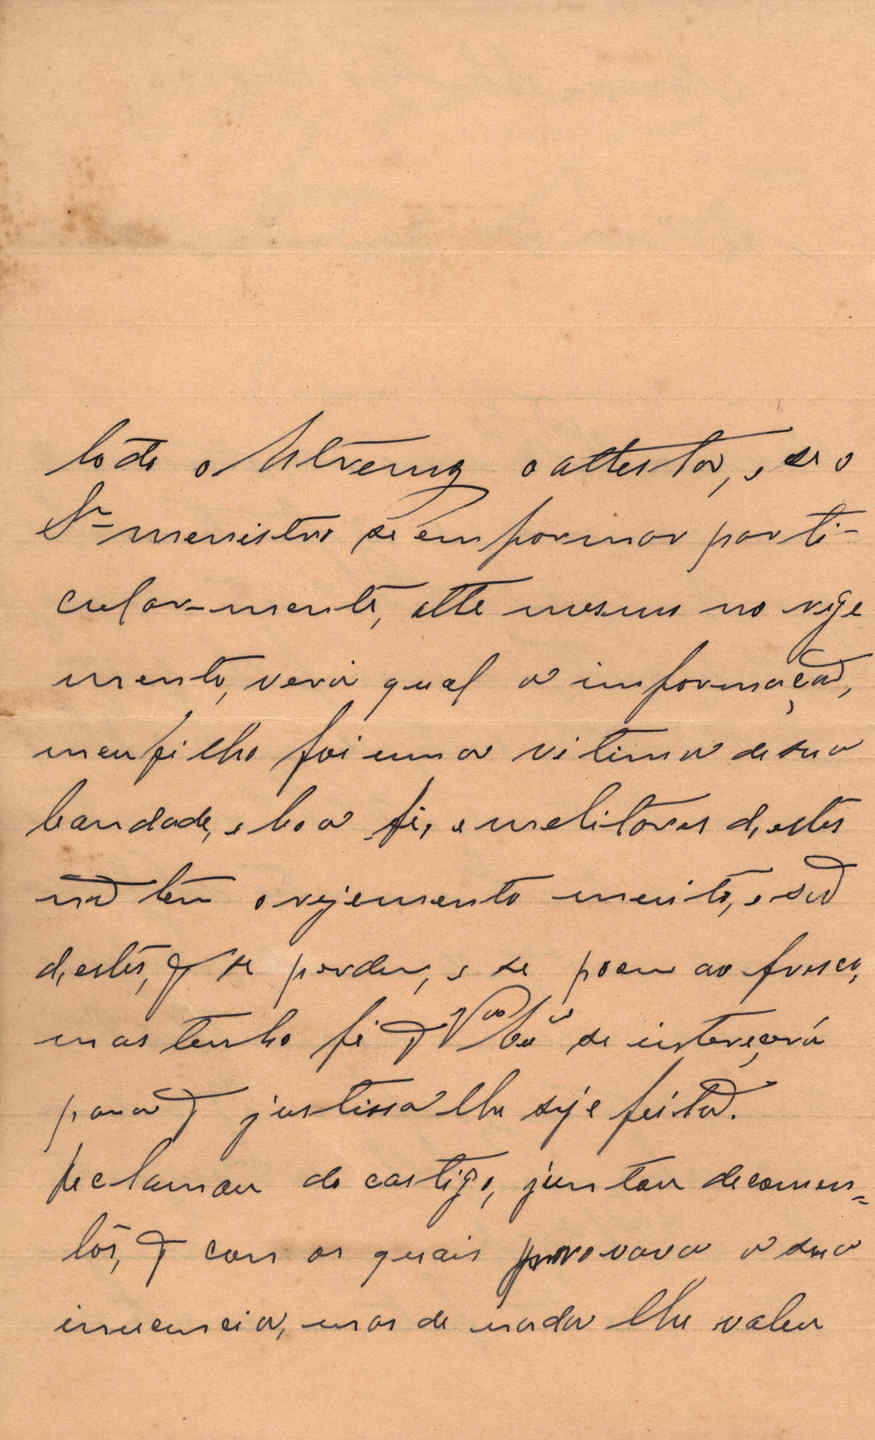 todo o Estremoz o attesta, e se o
Sr. menistro se emformar parti-
cular-mente, atte mesmo no reje
mento, verá qual a imformação,
meu filho foi uma vitima de sua
bandade, e boa fé, e melitares d'estes
não tem o rejemento muito, e são
d'estes, q se perdem, e se poem ao fresco,
mas tenho fé q V. Exa se intereçará
para q justissa lhe seje feita.
Reclamou do castigo, juntou decomen-
tos, q com os quais provava a sua
inucencia, mas de nada lhe valeu